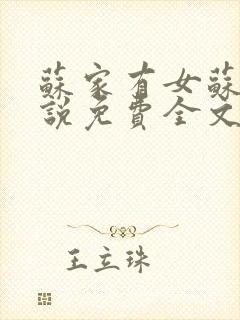 蘇家有女蘇
說免費全文
王立珠